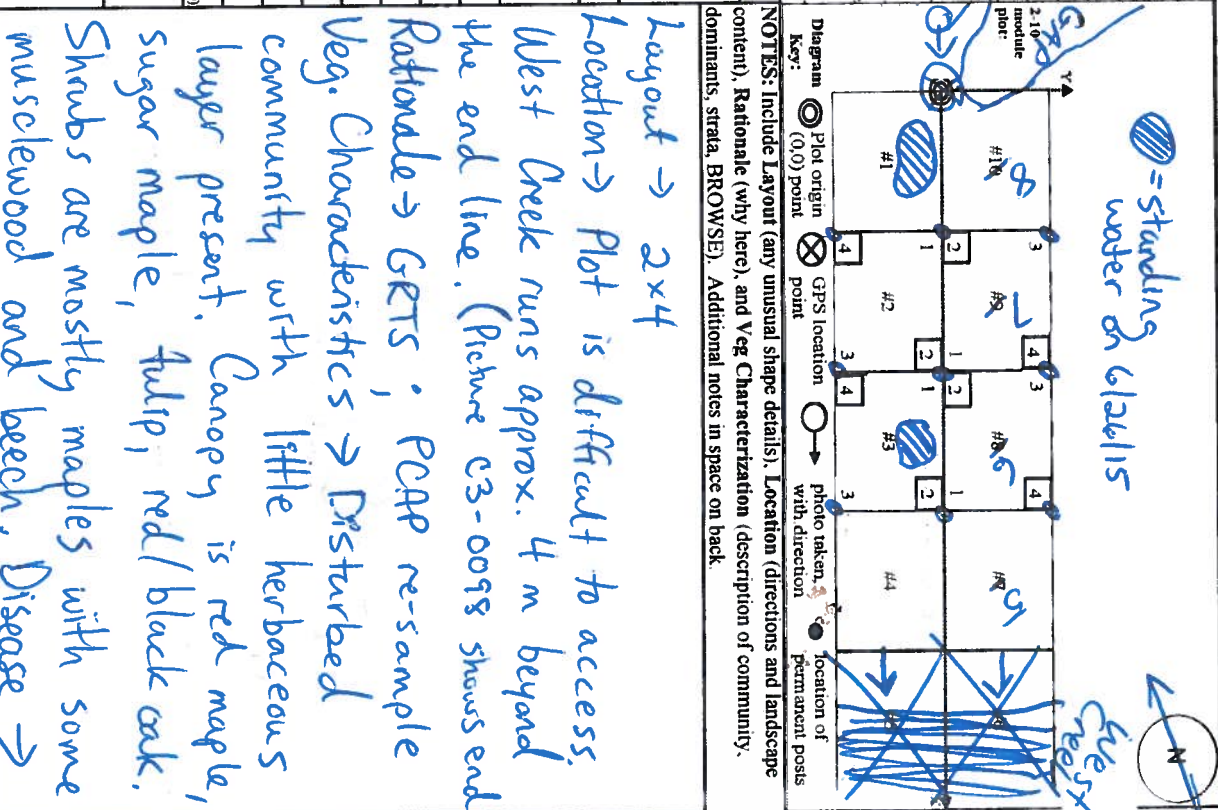 = standing
water on 6/26/15
N
Gap
2-10
module
plot:
Y
#10 8
#9 7
#8 6
#7 5
3
4
3
4
2
1
2
1
1
2
1
2
#1
#2
#3
#4
4
3
4
3
Creek
Diagram Key:
Plot origin (0,0) point
GPS location point
photo taken, with direction
location of permanent posts
NOTES: Include Layout (any unusual shape details). Location (directions and landscape
content), Rationale (why here), and Veg Characterization (description of community.
dominants, strata, BROWSE). Additional notes in space on back.
Layout → 2x4
Location → Plot is difficult to access.
West Creek runs approx. 4 m beyond
the end line. (Picture C3-0098 shows end
Rationale → GRTS; PCAP re-sample
Veg. Characteristics → Disturbed
community with little herbaceous
layer present. Canopy is red maple,
sugar maple, tulip, red/black oak.
Shrubs are mostly maples with some
musclewood and beech. Disease →